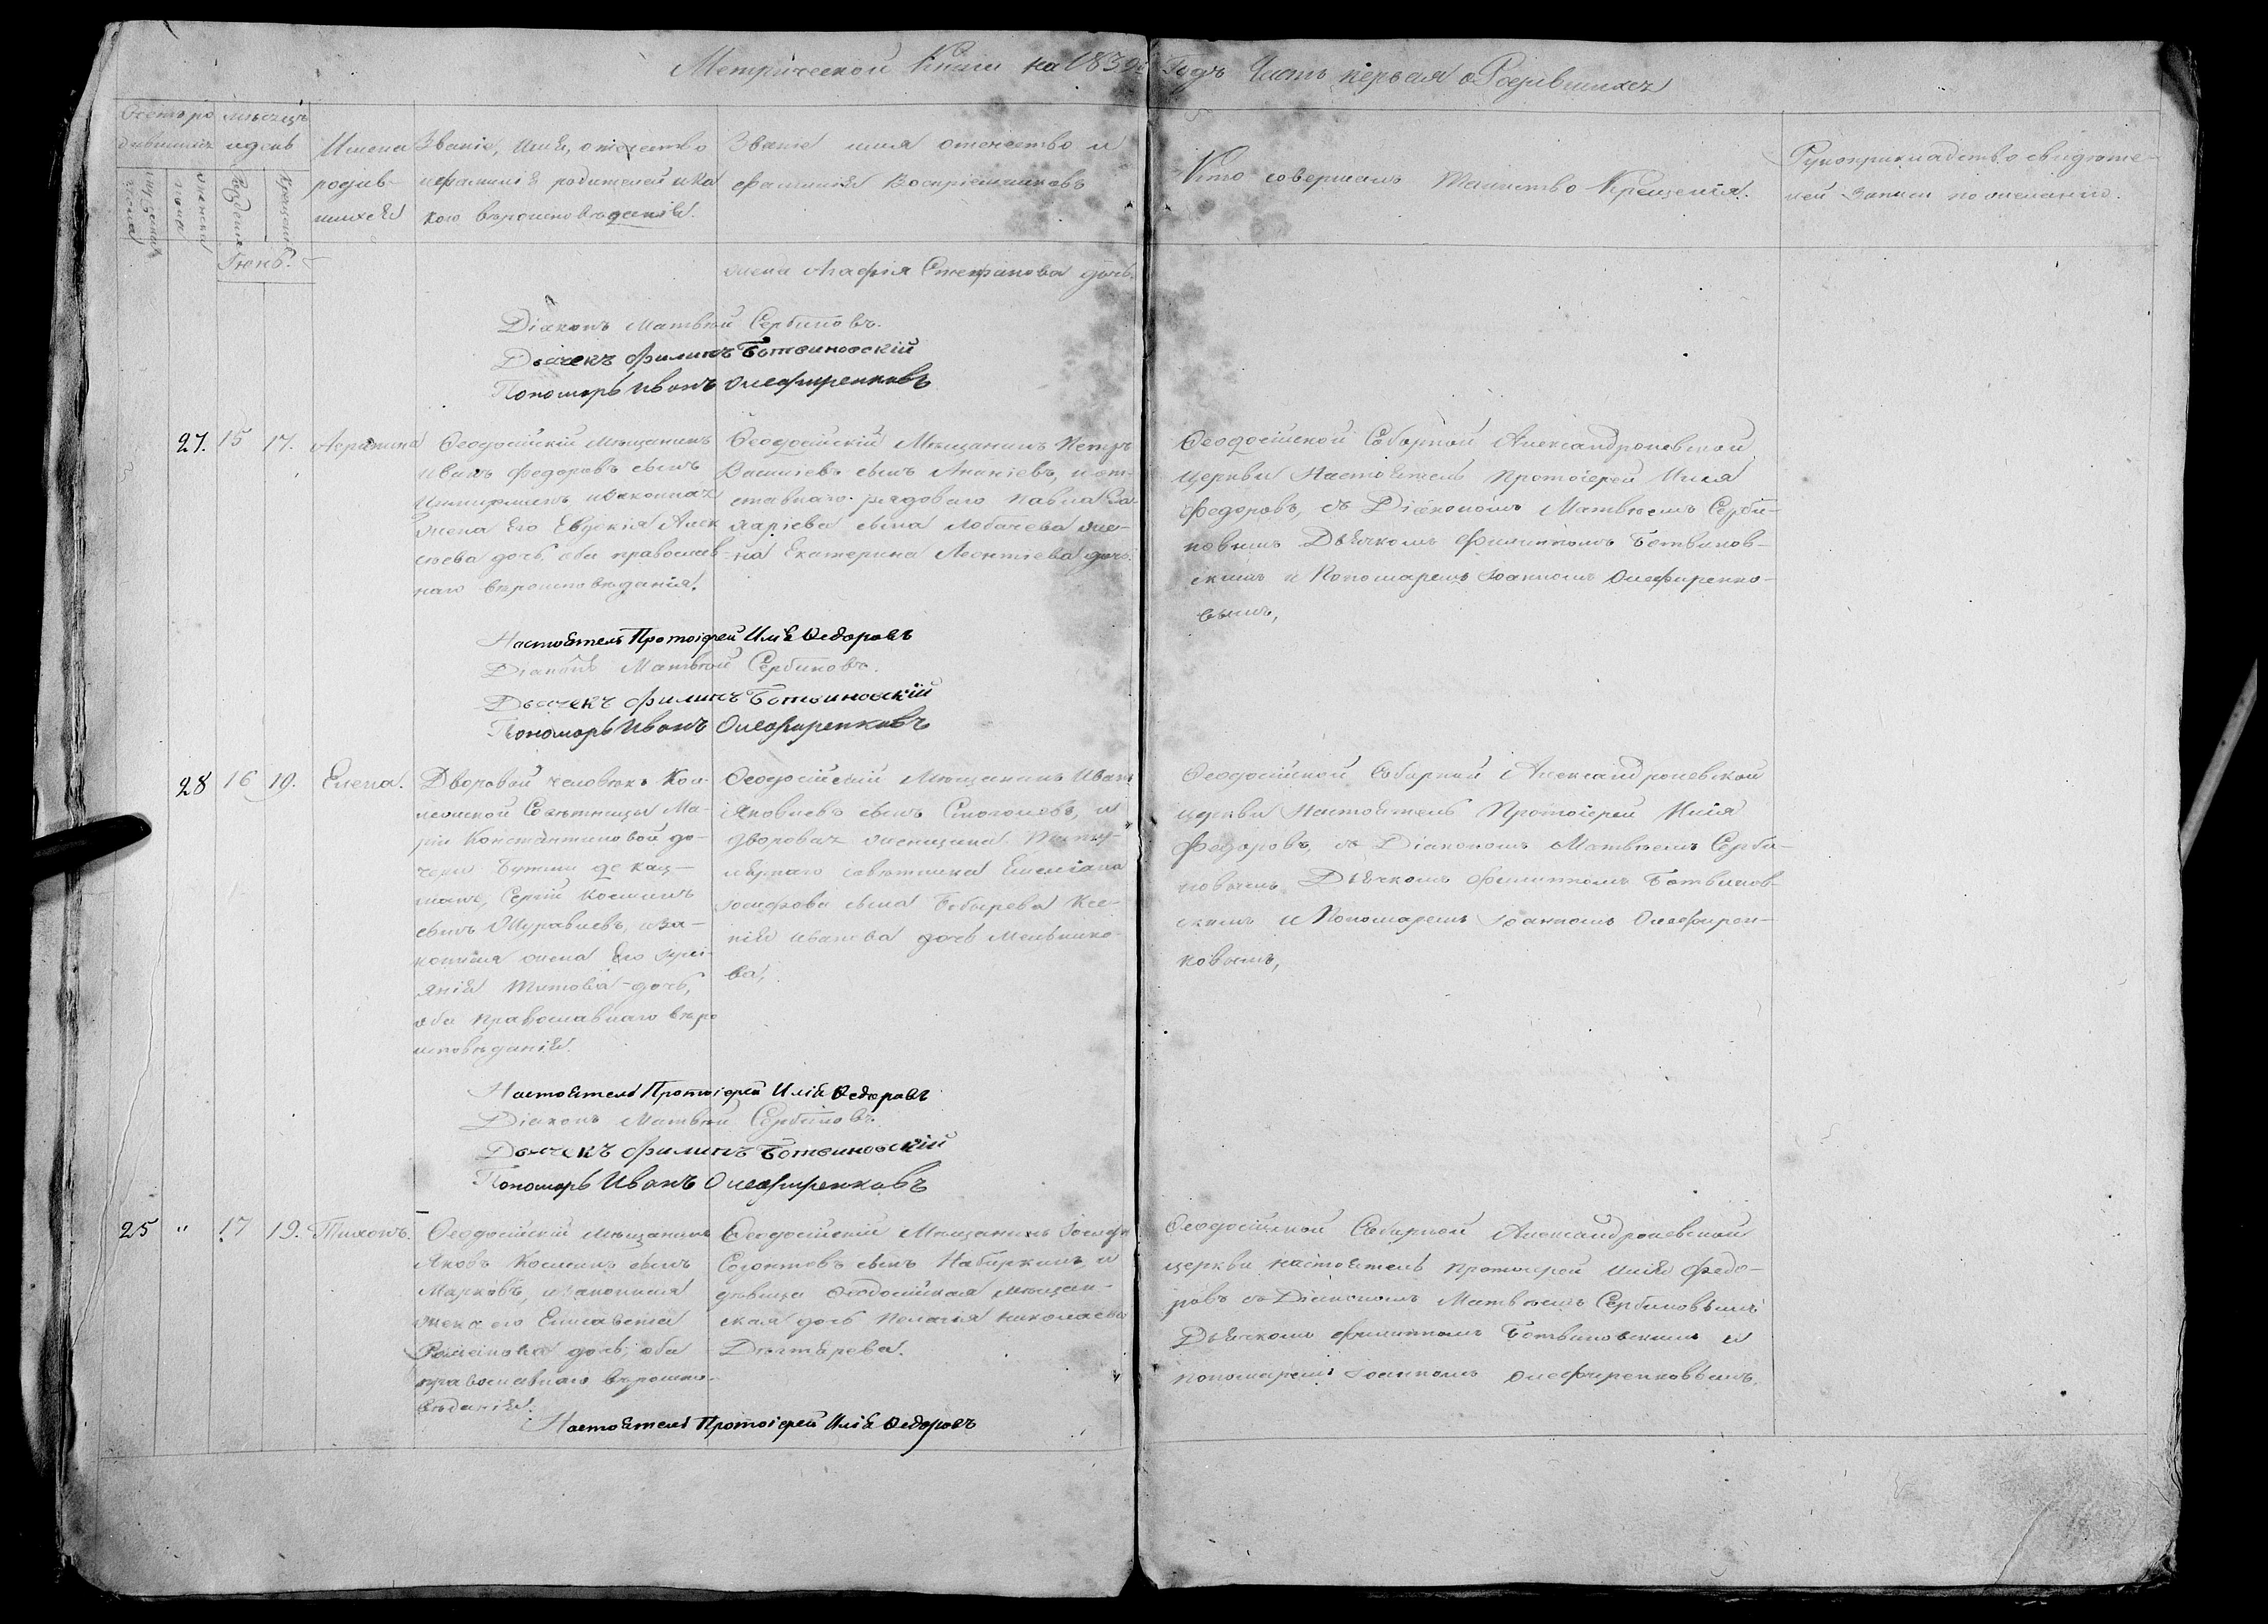 Метрической Книги на 1839й Годъ Часть первая о Родившихся
Счетъ ро
дившихся
мужеска
пола
женска
пола
мѣсяцъ
и день
Рожденія
Крещенія
Имена
родив-
шихся
Званіе, Имя, отечество
и фамилія родителей и ка
кого вѣроисповѣданія.
Званіе имя отечество и
фамилія Воспріемниковъ
Кто совершалъ Таинство Крещенія.
Рукоприкладство свидѣте-
лей Записи по желанію.
Іюнь.
жена Агафія Стефанова дочь.
Діаконъ Матвѣй Сербиновъ.
Дьячекъ Филипъ Ботвиновскій
Пономарь Иванъ Олефиренковъ
27. 15 17.
Ѳеодосійскій Мѣщанинъ
Иванъ Федоровъ сынъ
и законная
жена Его Евдокія Алек
сѣева дочь, оба православ-
наго вѣроисповѣданія.
Ѳеодосійскій Мѣщанинъ Петръ
Васильевъ сынъ Ананіевъ, и от-
ставнаго рядоваго Павла За-
харіева сына Лобачева же-
на Екатерина Леонтіева дочь.
Ѳеодосійской Соборной Александроневской
церкви Настоятель Протоіерей Илія
Федоровъ, съ Діакономъ Матвѣемъ Серби-
новымъ Дьячкомъ Филиппомъ Ботвинов-
скимъ и Пономаремъ Іоанномъ Олефиренко-
вымъ,
Настоятель Протоіерей Илія Ѳедоровъ
Діаконъ Матвѣй Сербиновъ.
Дьячекъ Филипъ Ботвиновскій
Пономарь Иванъ Олефиренковъ
28 16 19. Елена.
Дворовый человѣкъ Кол-
лежской Совѣтницы Ма-
ріи Константиновой до-
чери
Сергій Косминъ
сынъ Журавлевъ, и за-
конная жена Его
Титова дочь,
оба православнаго вѣро
исповѣданія.
Ѳеодосійскій Мѣщанинъ Иванъ
Яковлевъ сынъ и
дворовая женщина Титу-
лярнаго совѣтника Емеліана
Іосифова сына Бобырева Ксе-
нія Иванова дочь Мельнико-
ва,
Ѳеодосійской Соборной Александроневской
церкви Настоятель Протоіерей Илія
Федоровъ, съ Діакономъ Матвѣемъ Серби-
новымъ Дьячкомъ Филиппомъ Ботвинов-
скимъ и Пономаремъ Іоанномъ Олефирен-
ковымъ,
Настоятель Протоіерей Илія Ѳедоровъ
Діаконъ Матвѣй Сербиновъ.
Дьячекъ Филипъ Ботвиновскій
Пономарь Иванъ Олефиренковъ
25 " 17 19. Тихонъ.
Ѳеодосійскій мѣщанинъ
Яковъ Косминъ сынъ
Марковъ, и законная
жена его Елисавета
дочь, оба
православнаго вѣроиспо-
вѣданія.
Ѳеодосійскій Мѣщанинъ Іосифъ
сынъ Набиркинъ, и
дѣвица Ѳеодосійская мѣщан-
ская дочь Пелагія Николаева
Дегтярева.
Ѳеодосійской Соборной Александроневской
церкви настоятель протоіерей Илія Федо-
ровъ съ Діакономъ Матвѣемъ Сербиновымъ
Дьячкомъ Филиппомъ Ботвиновскимъ и
пономаремъ Іоанномъ Олефиренковымъ.
Настоятель Протоіерей Илія Ѳедоровъ